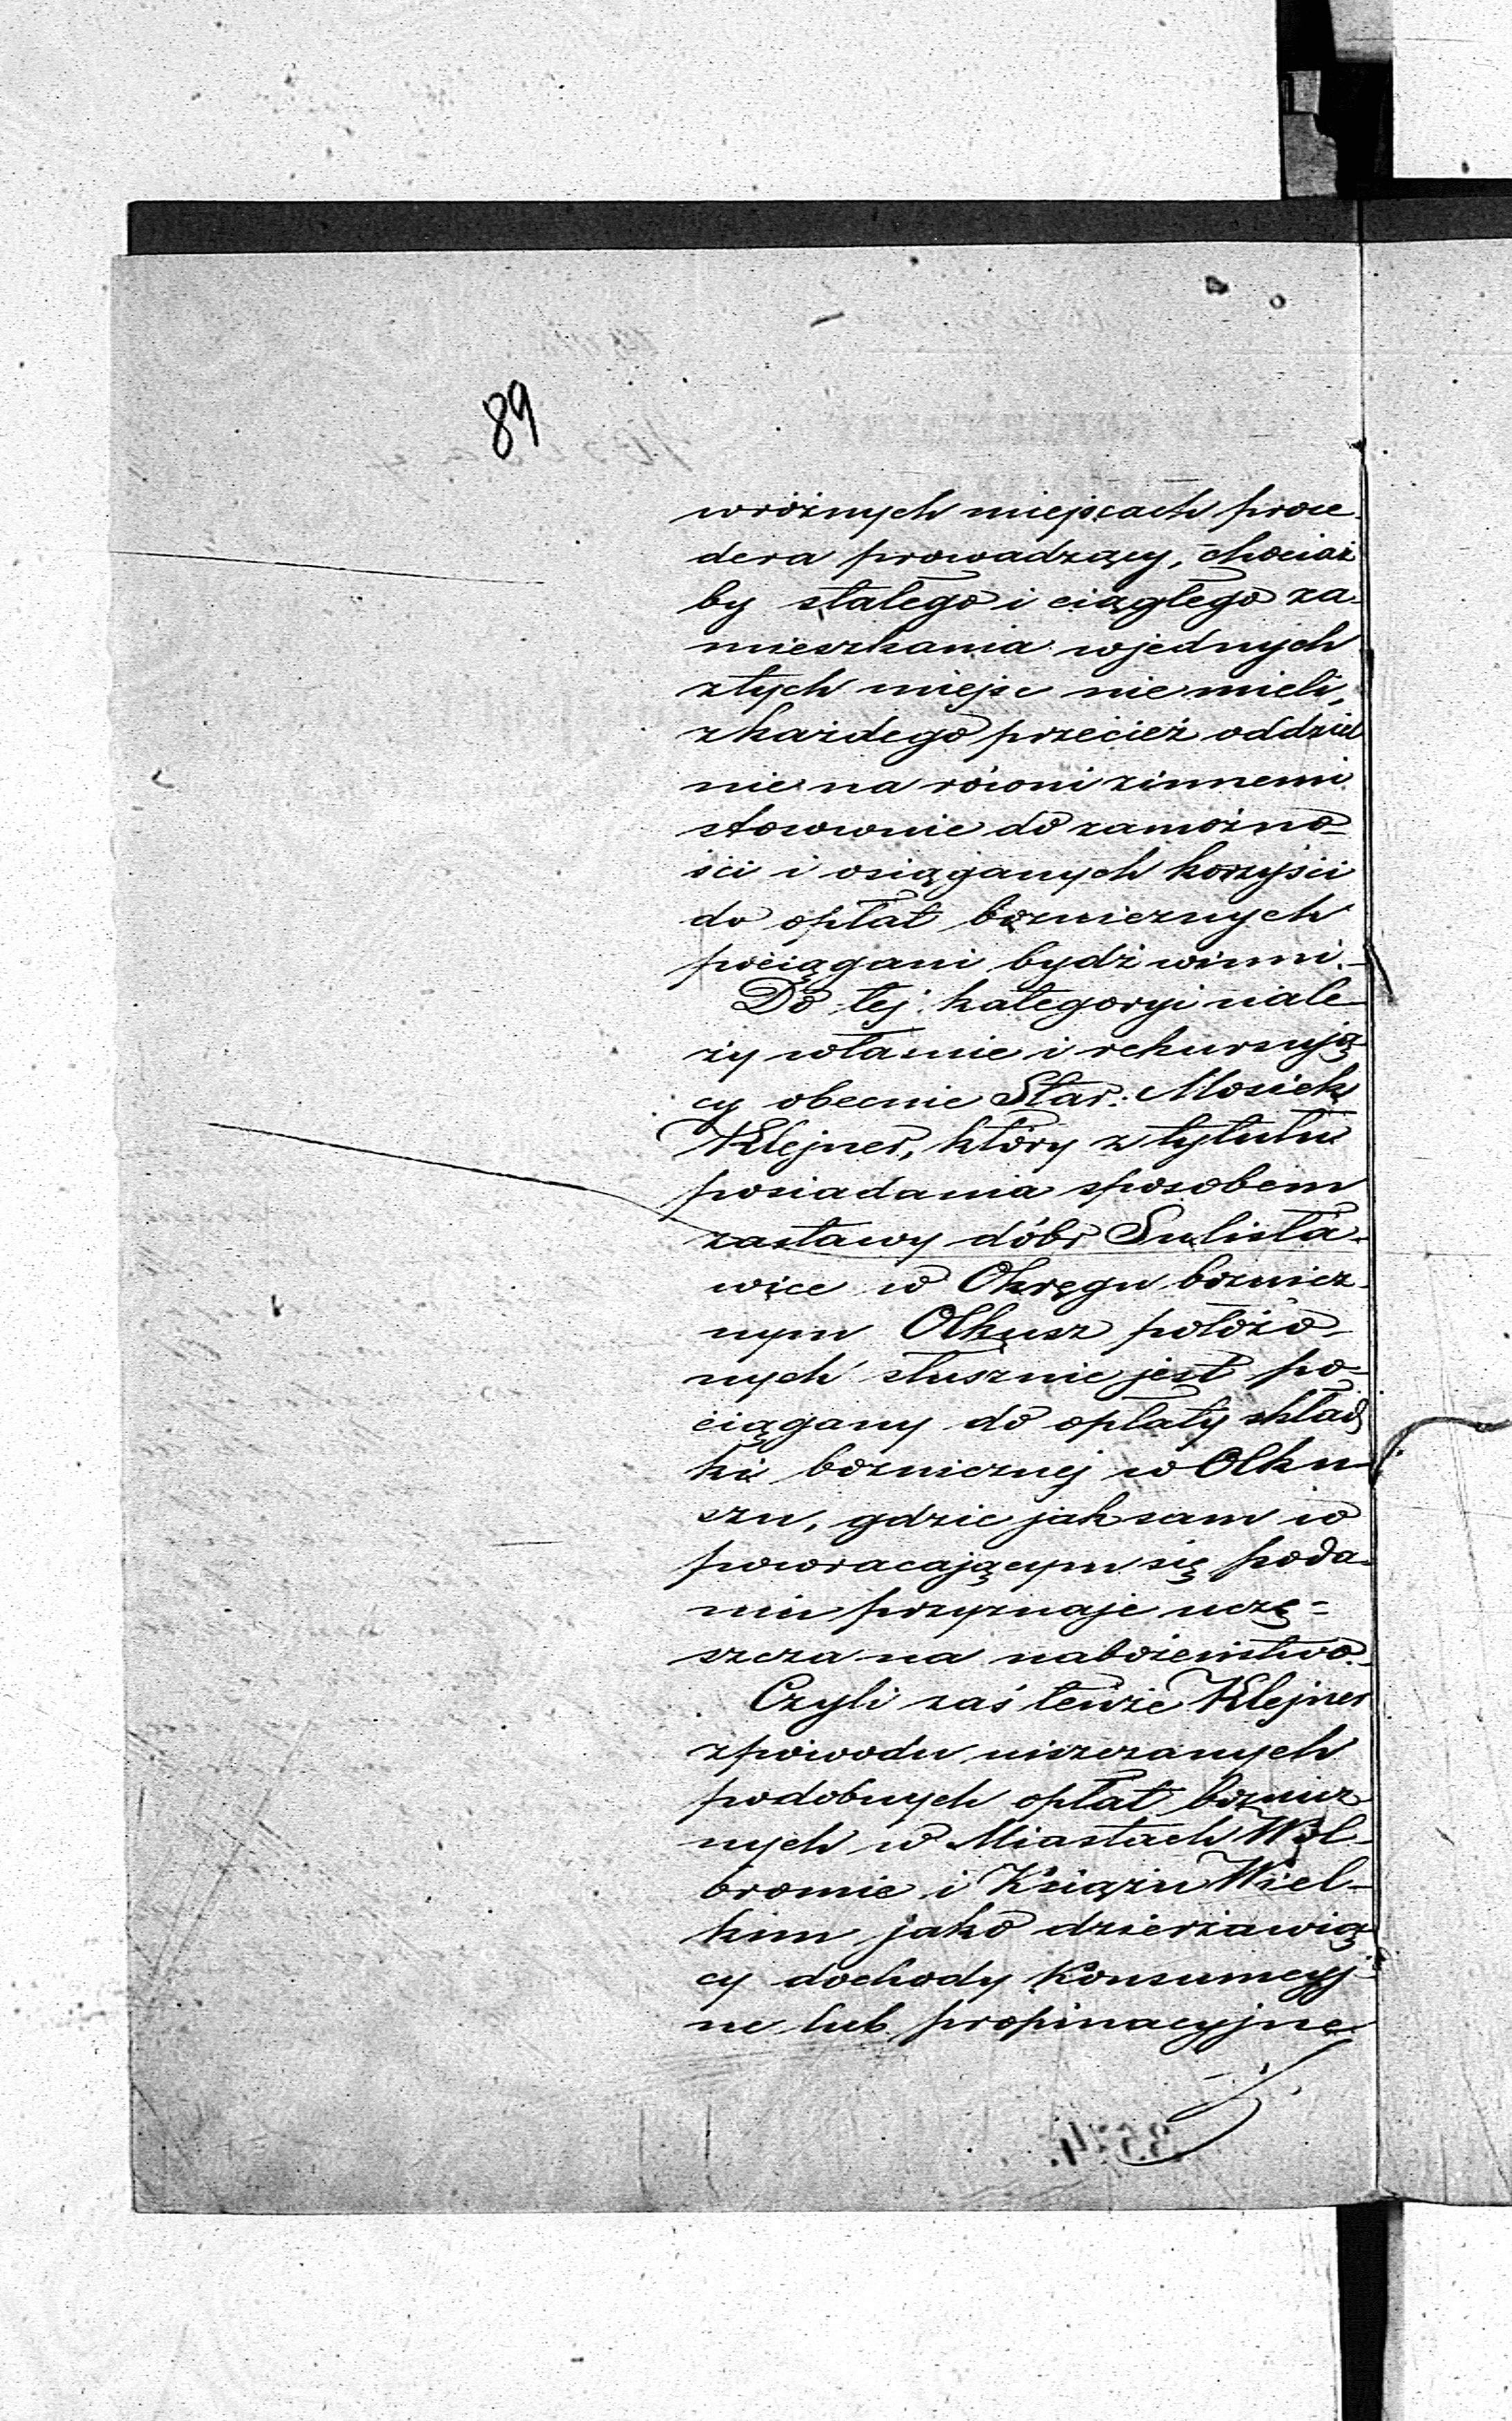 89
w różnych miejscach proce-
dera prowadzący, chociaż
by stałego i ciągłego za-
mieszkania w jednych
z tych miejsc nie mieli,
z każdego przecież oddziel
nie na równi z innemi
stosownie do zamożno-
ści i osiąganych korzyści
do opłat bożnicznych
pociągani bydź winni.-
Do tej kategoryi nale-
ży właśnie i rekursują-
cy obecnie Star: Mosiek
Klejner, który z tytułu
posiadania sposobem
zastawy dóbr Sulisła-
wice w Okręgu bożnicz-
nym Olkusz położo-
nych słusznie jest po-
ciągany do opłaty skład
ki bożnicznej w Olku-
szu, gdzie jak sam w
powracającym się poda-
niu przyznaje uczę=
szcza na nabożeństwo.-
Czyli zaś tenże Klejner
z powodu uiszczanych
podobnych opłat bożnicz
nych w Miastach Wol-
bromie i Książu Wiel-
kim jako dzierżawią-
cy dochody Konsumcyj-
ne lub propinacyjne